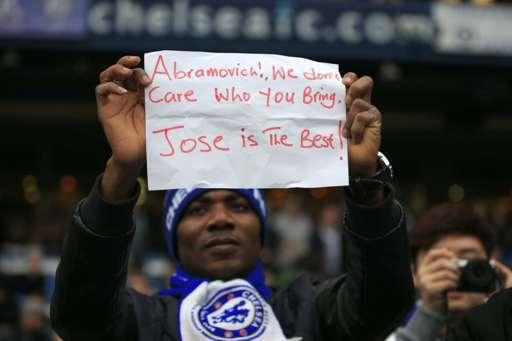 chelseafc.com
Abramovich!, We don't
Care Who You Bring.
Jose is The Best!